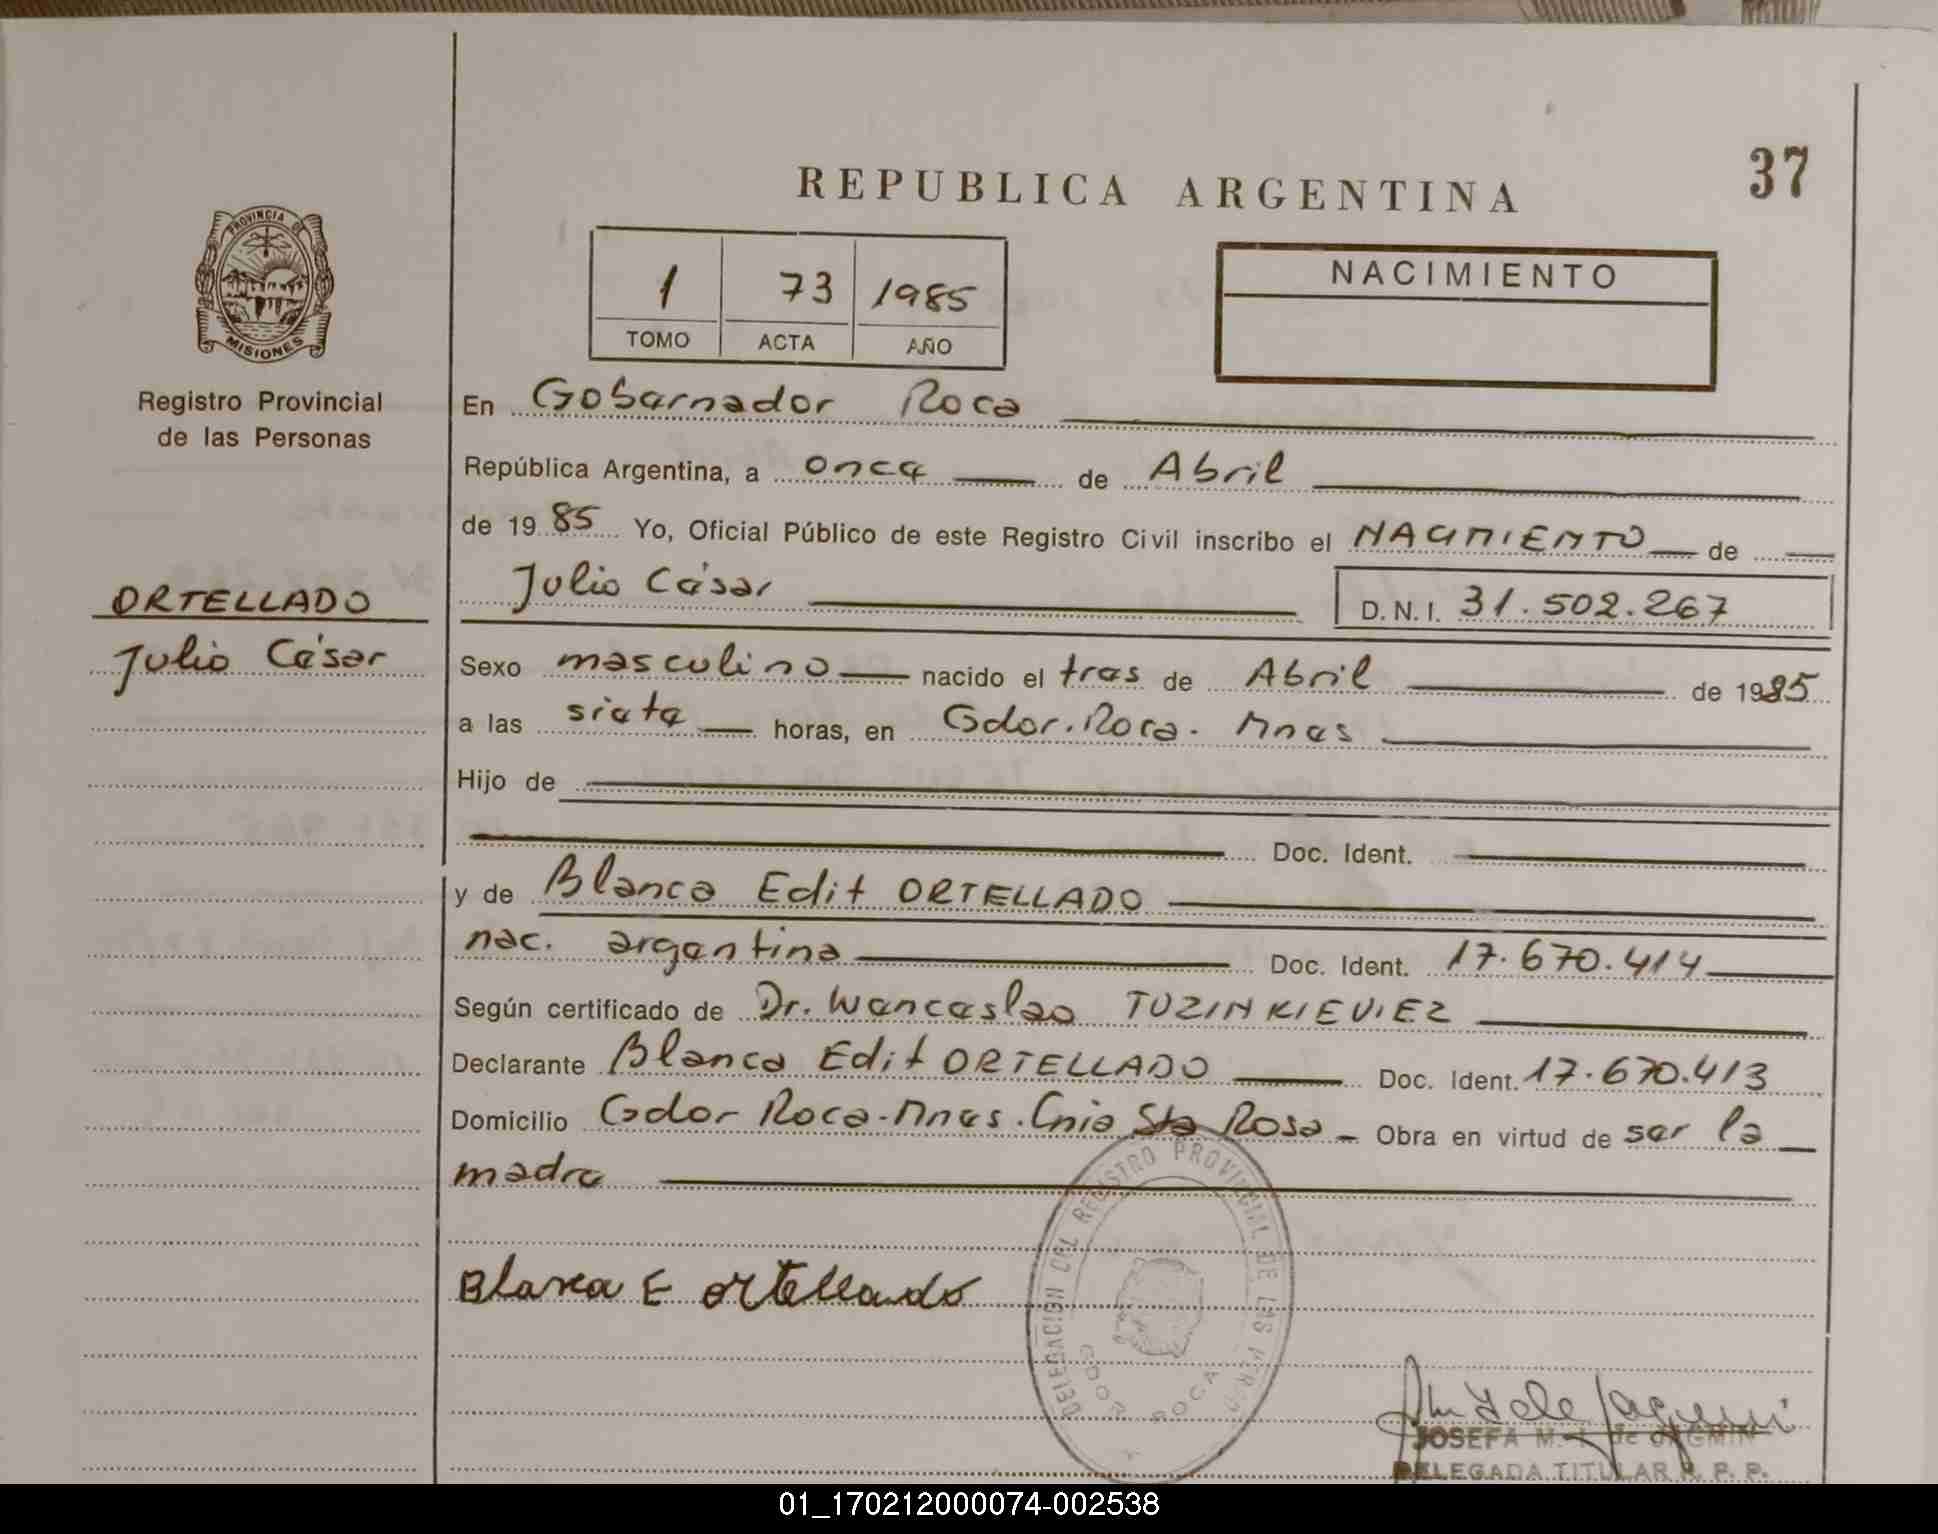 37
REPUBLICA ARGENTINA
PROVINCIA DE
MISIONES
1 73 1985
TOMO ACTA AÑO
NACIMIENTO
Registro Provincial
de las Personas
En Gobernador Roca
República Argentina, a once de Abril
de 1985 Yo, Oficial Público de este Registro Civil inscribo el NACIMIENTO de
ORTELLADO
Julio César
Julio César D.N.I. 31.502.267
Sexo masculino nacido el tres de Abril de 1985
a las siete horas, en Gdor. Roca. Mnes
Hijo de
Doc. Ident.
y de Blanca Edit ORTELLADO
nac. argentina Doc. Ident. 17.670.414
Según certificado de Dr. Wenceslao TUZINKIEVIEZ
Declarante Blanca Edit ORTELLADO Doc. Ident. 17.670.413
Domicilio Gdor Roca-Mnes. Cnia Sta Rosa - Obra en virtud de ser la
madre
DELEGACION DEL REGISTRO PROVINCIAL DE LAS PER
GDOR ROCA
Blanca E ortellado
JOSEFA M.
DELEGADA TITULAR R. P. P.
01_170212000074-002538